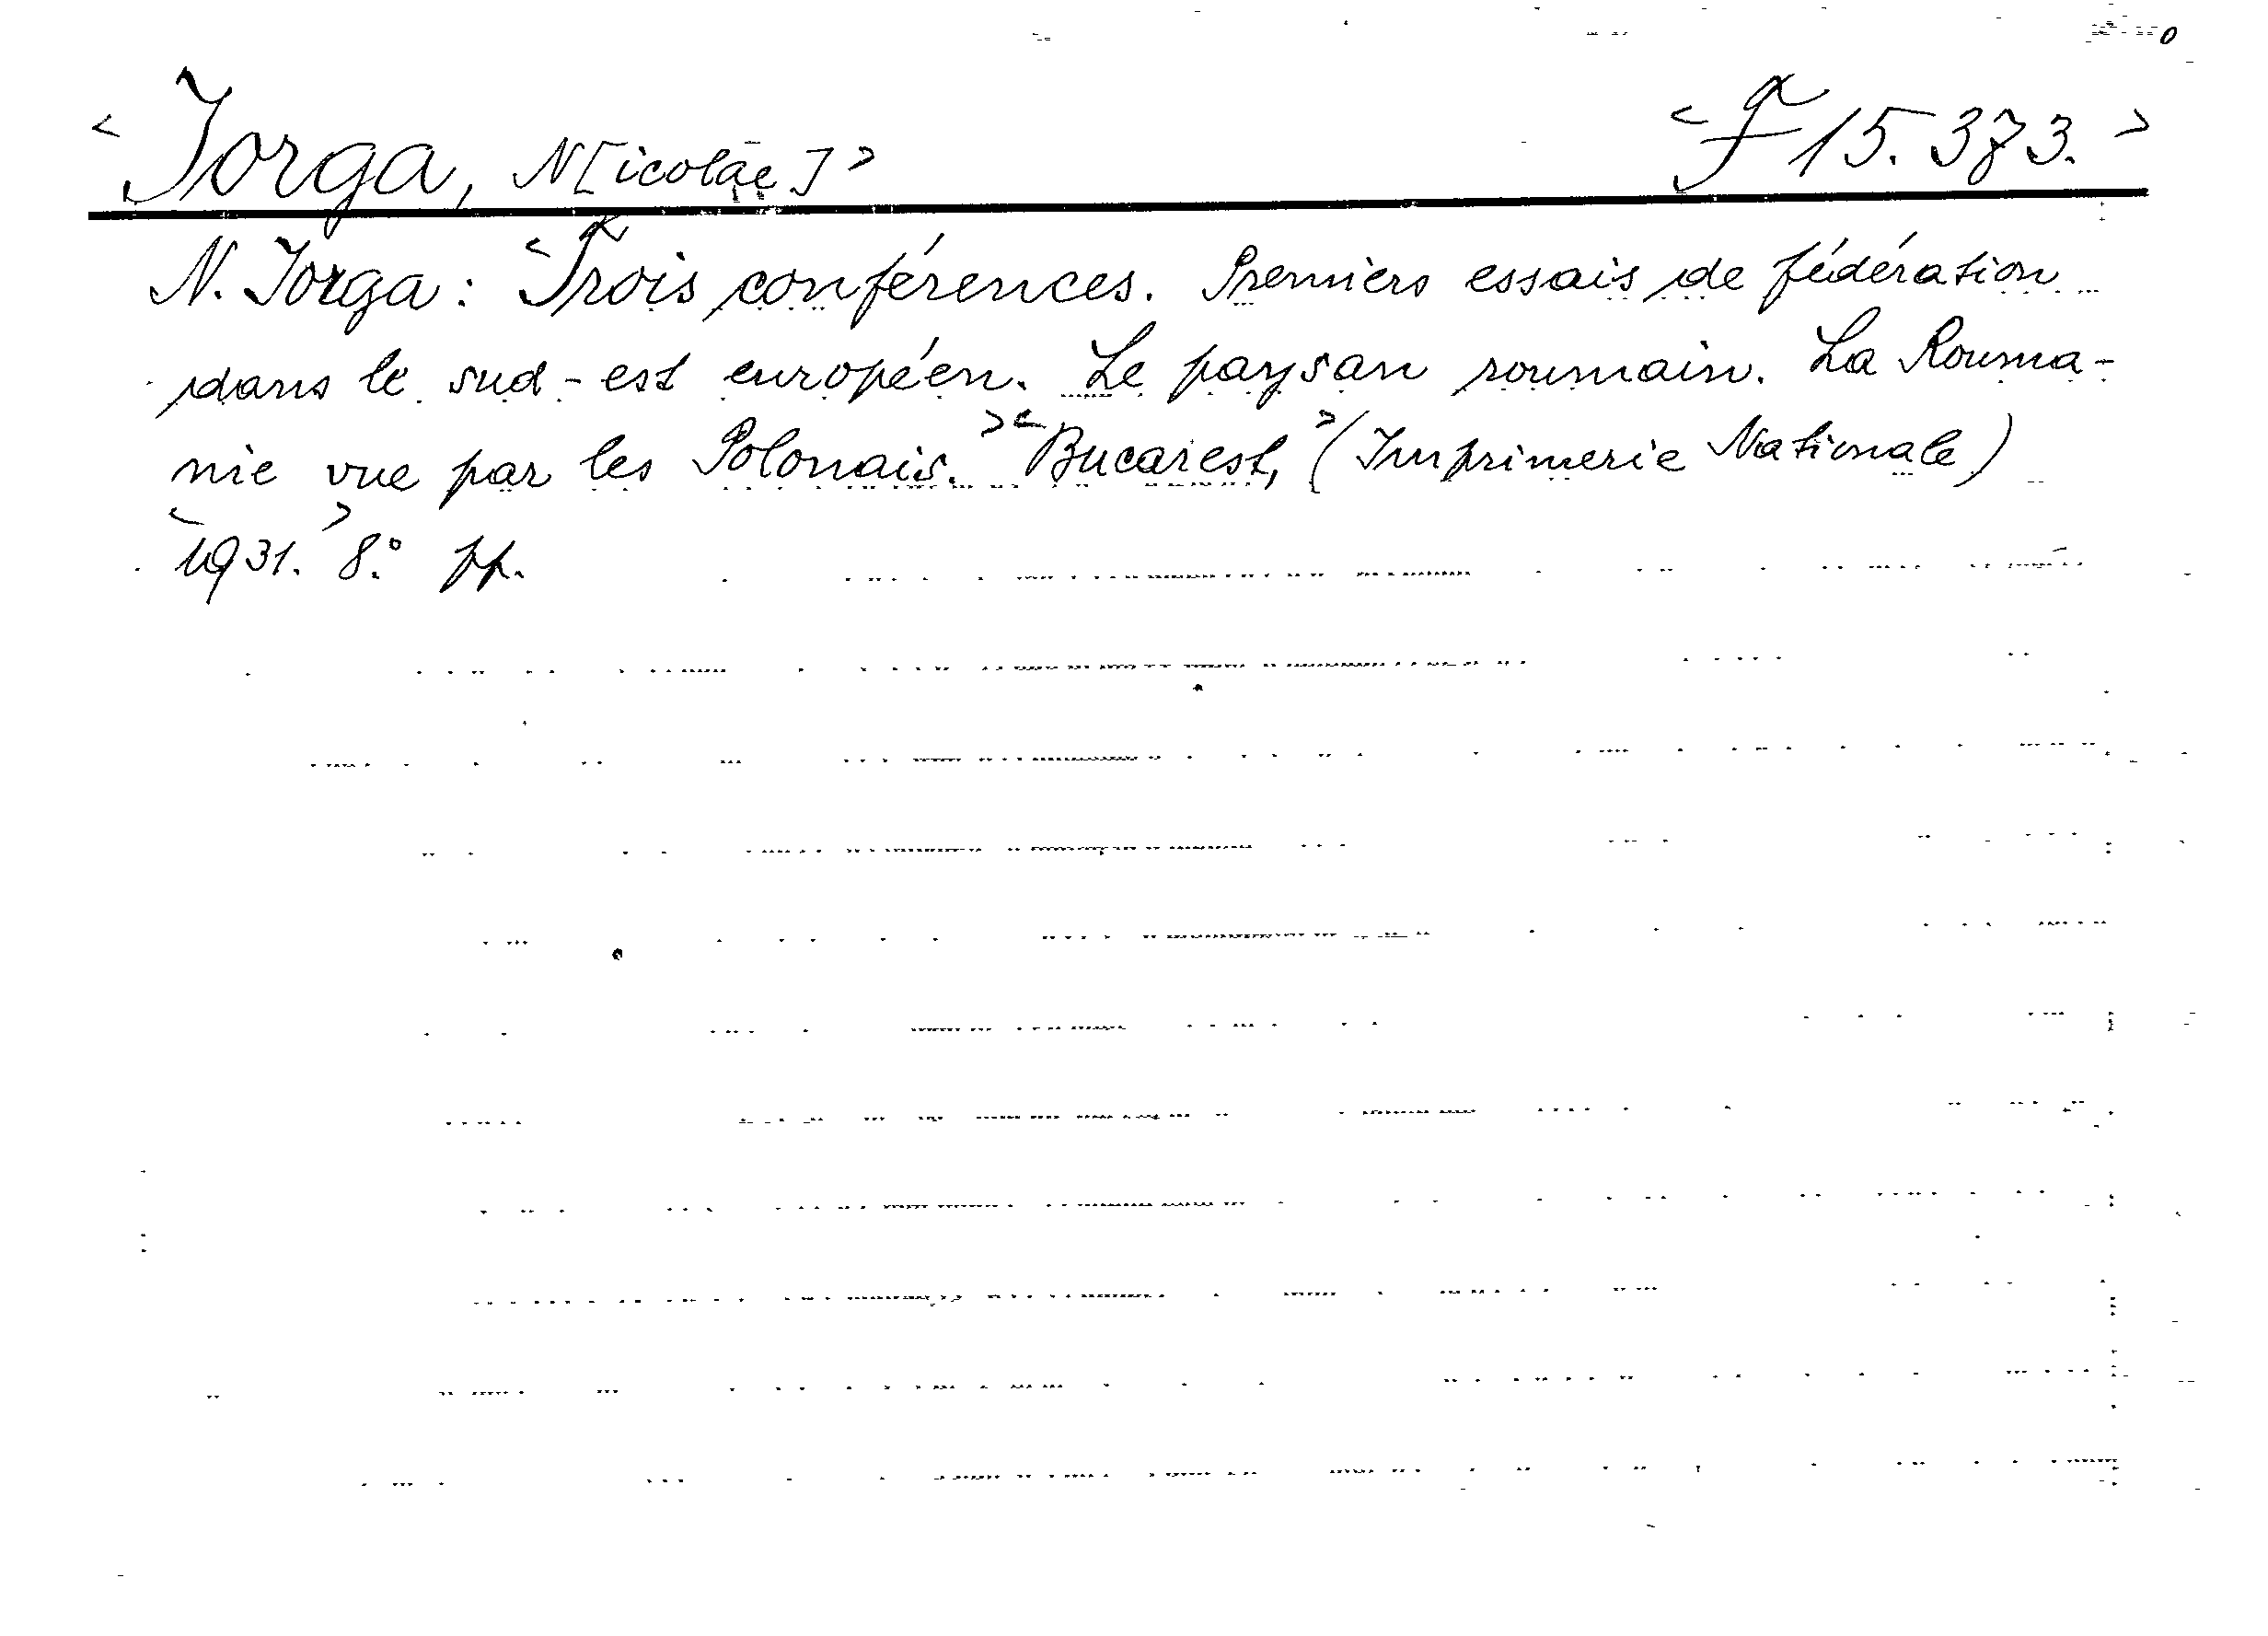 <Jorga, N[icolae]> <F 15.373.>
N. Jorga: <Trois conférences. Premiers essais de fédération
dans le sud-est européen. Le paysan roumain. La Rouma-
nie vue par les Polonais.> <Bucarest,> (Imprimerie Nationale)
<1931.> 8.° pp.